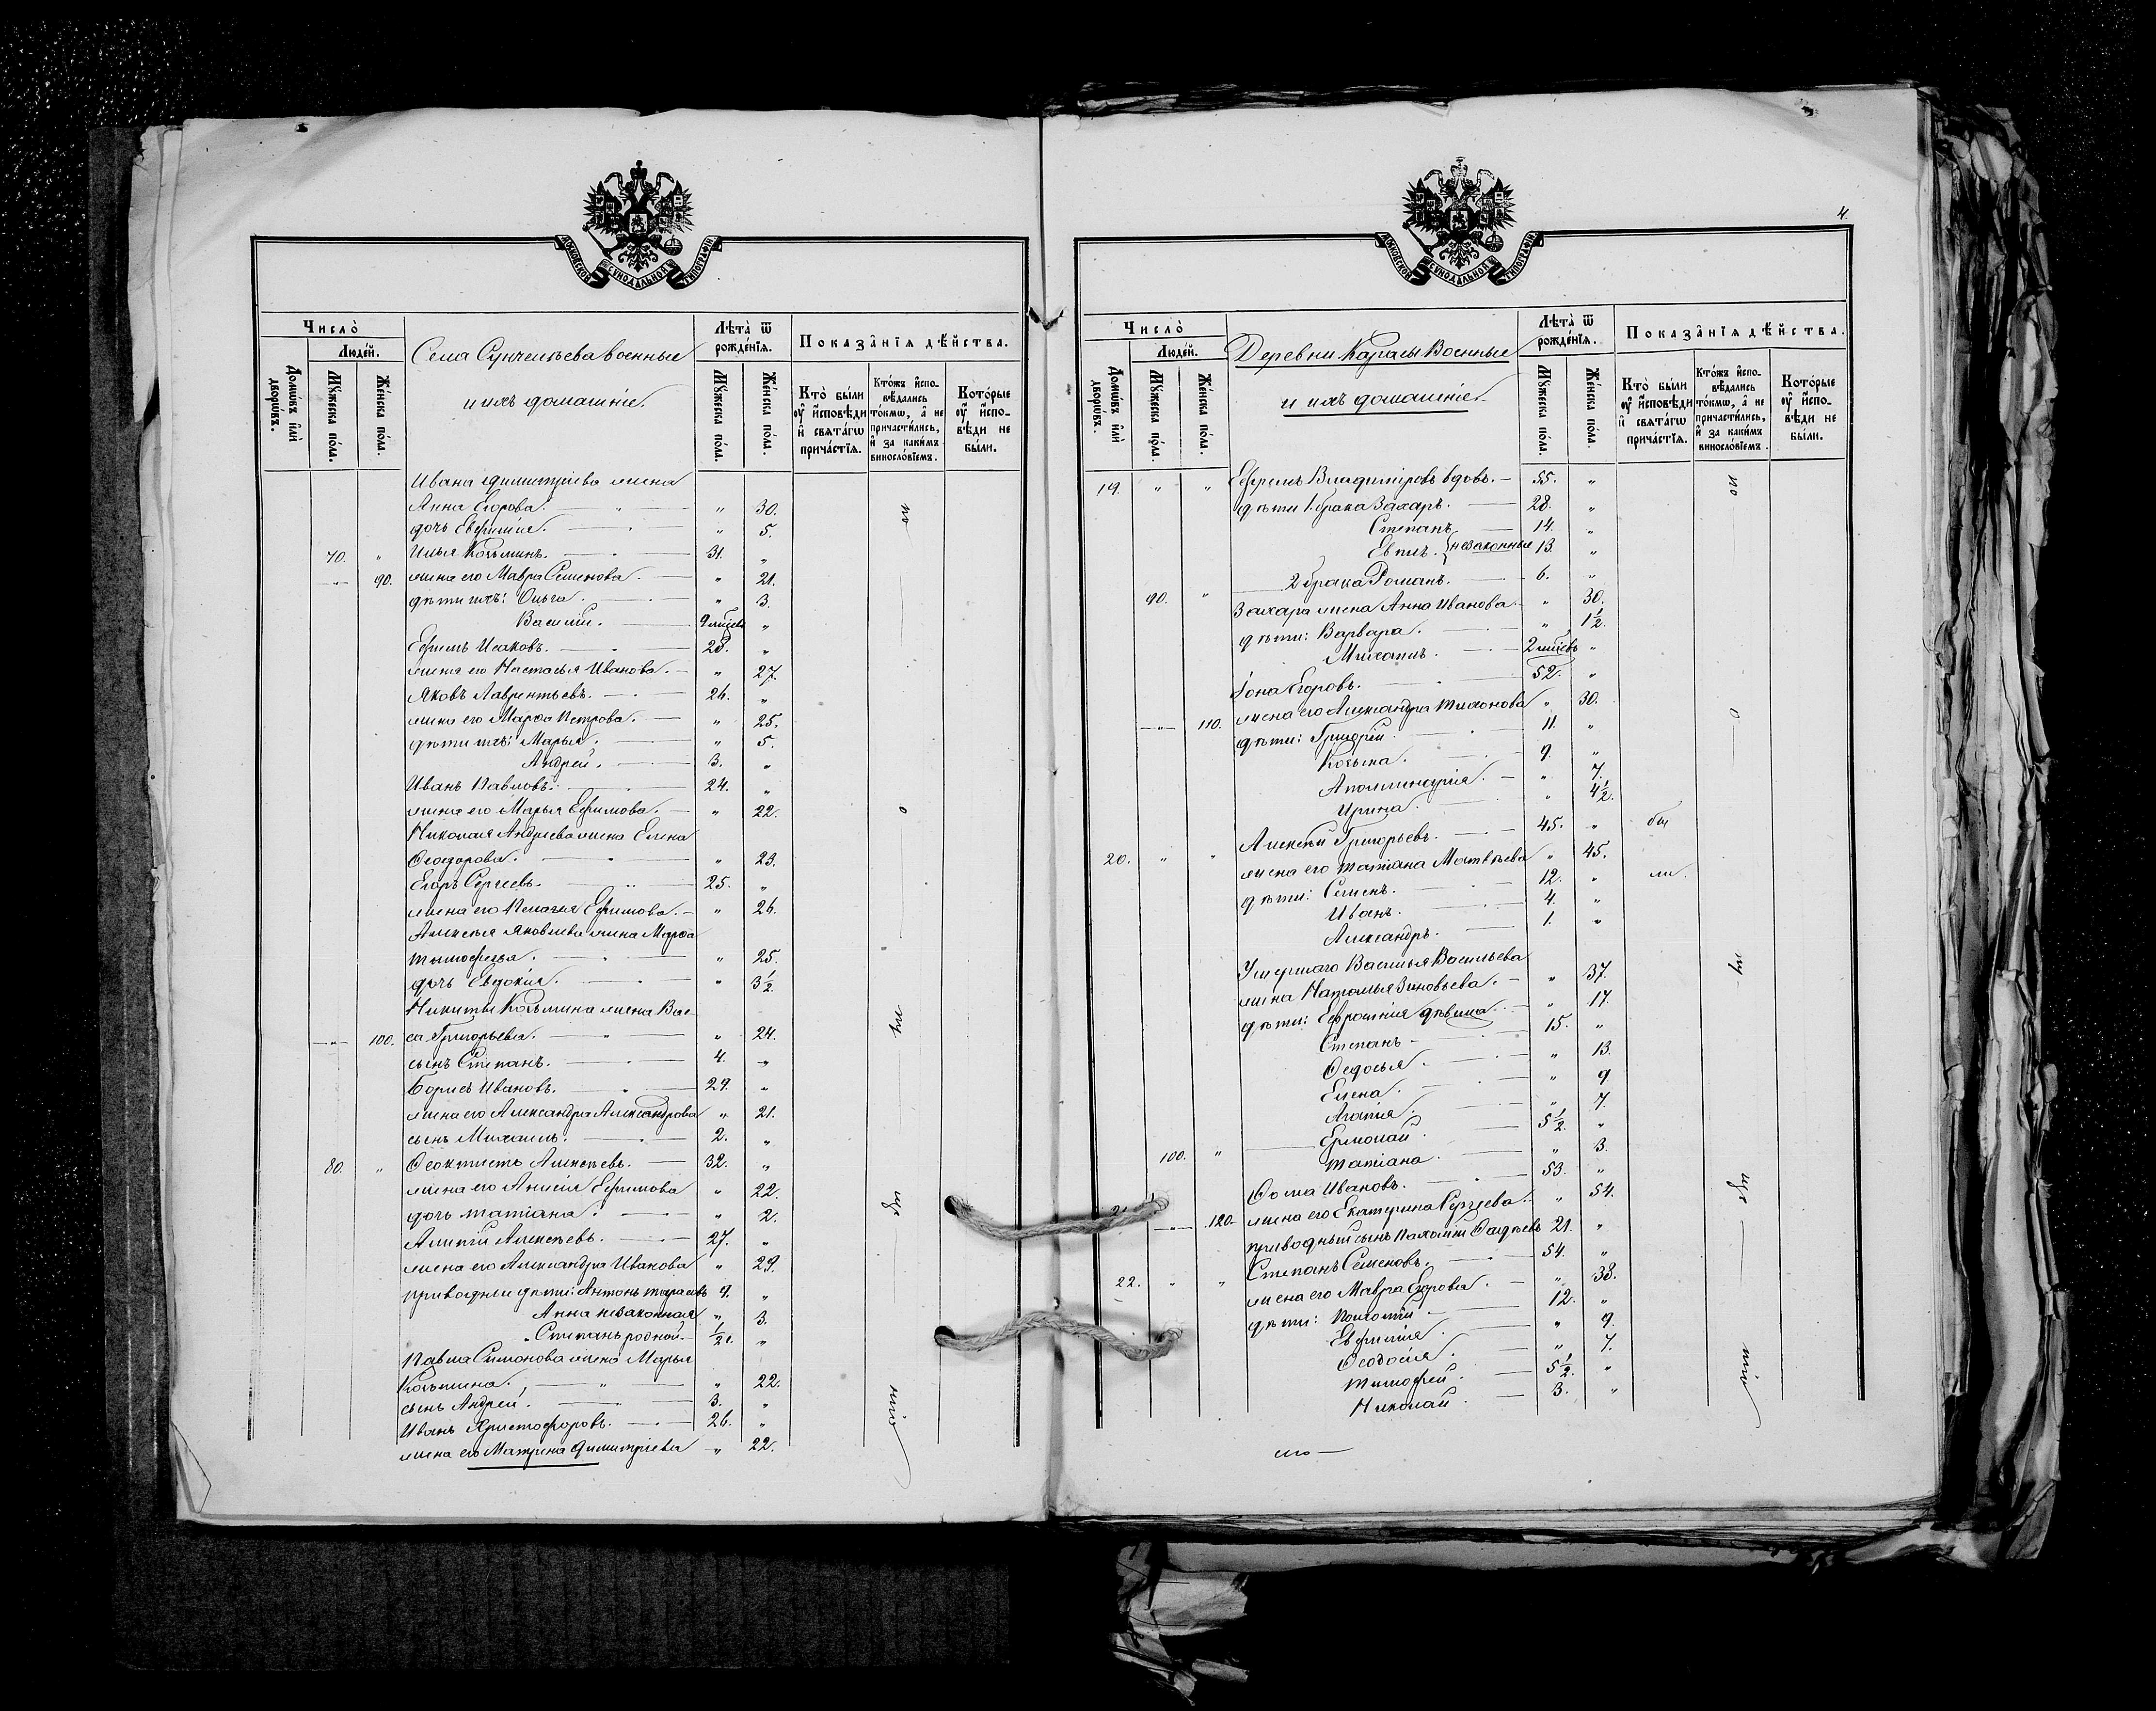 Московской Сѵнодальной Типографіи
Число̀
Домѡвъ илѝ дворѡвъ.
Люде́й.
Мꙋжеска по́ла.
Же́нска по́ла.
Села Сунчелѣева военные
и ихъ домашніе.
Лѣта̀ ѿ рожде́нїѧ.
Мꙋжеска по́ла.
Же́нска по́ла.
Показа̑нїѧ дѣ́йства.
Кто̀ были ᲂу҆ и҆сповѣди и҆ свѧта́гѡ прича́стїѧ.
Кто́жъ и҆спо-вѣдались то́кмѡ, а҆ не причасти́лись, и҆ за каки́мъ винослові́емъ.
Кото́рые ᲂу҆ и҆спо-вѣди не бы́ли.
Ивана Димитріева жена
Анна Егорова. " 30.
дочь Евфимія. " 5.
70. " Илья Козьминъ. 31. "
" 90. жена его Мавра Семенова. " 21.
дѣти ихъ: Ольга. " 3.
Василій. 9 мѣсяц. "
Ефимъ Исаковъ. 28. "
жена его Настасья Иванова. " 27.
Яковъ Лаврентьевъ. 26. "
жена его Марѳа Петрова. " 25.
дѣти ихъ: Марья. " 5.
Андрей. 3. "
Иванъ Павловъ. 24. "
жена его Марья Ефимова. " 22.
Николая Андреева жена Елена
Ѳеодорова. " 23.
Егоръ Сергеевъ. 25. "
жена его Пелагея Ефимова. " 26.
Алексѣя Яковлева жена Марѳа
Тимофеева. " 25.
дочь Евдокія. " 3½.
Никиты Козьмина жена Вас-
" 100. са Григорьева. " 24.
сынъ Степанъ. 4. "
Борисъ Ивановъ. 29. "
жена его Александра Александрова " 21.
сынъ Михаилъ. 2. "
80. " Ѳеоктистъ Алексѣевъ. 32. "
жена его Анисія Ефимова " 22.
дочь Татіана. " 2.
Алипій Алексѣевъ. 27. "
жена его Александра Иванова " 29.
приводные дѣти: Антонъ Тарасовъ 9. "
Анна незаконная " 3.
Степанъ родной. ½. "
Павла Симонова жена Марья
Козьмина. " 22.
сынъ Андрей. 3. "
Иванъ Христофоровъ. 26. "
жена его Матрена Димитріева " 22.
4.
Московской Сѵнодальной Типографіи
Число̀
Домѡвъ илѝ дворѡвъ.
Люде́й.
Мꙋжеска по́ла.
Же́нска по́ла.
Деревни Карасы Военные
и ихъ домашніе.
Лѣта̀ ѿ рожде́нїѧ.
Мꙋжеска по́ла.
Же́нска по́ла.
Показа̑нїѧ дѣ́йства.
Кто̀ были ᲂу҆ и҆сповѣди и҆ свѧта́гѡ прича́стїѧ.
Кто́жъ и҆спо-вѣдались то́кмѡ, а҆ не причасти́лись, и҆ за каки́мъ винослові́емъ.
Кото́рые ᲂу҆ и҆спо-вѣди не бы́ли.
19. " " Ефремъ Владиміровъ вдовъ. 55. "
дѣти 1 брака Захаръ. 28. "
Степанъ 14. "
незаконные 13. "
2 брака Романъ. 6. "
90. " Захара жена Анна Иванова. " 30.
дѣти: Варвара. " 1½.
Михаилъ. 2 мѣсяц. "
Іона Егоровъ. 52. "
" 110. жена его Александра Тихонова " 30.
дѣти: Григорій. 11. "
Козьма. 9. "
Аполлинарія. " 7.
Ирина. " 4½.
Алексѣй Григорьевъ. 45. " бы
20. " " жена его Татіана Матвѣева " 45. ли.
дѣти: Семенъ. 12. "
Иванъ. 4. "
Александръ. 1. "
Умершаго Василья Васильева
жена Наталья Зиновьева. " 37.
дѣти: Ефросинія дѣвица. " 17.
Степанъ 15. "
Ѳедосья. " 13.
Елена. " 9.
Агапія. " 7.
Ермолай. 5½. "
100. " Татіана. " 3.
Ѳома Ивановъ. 53. "
" 120. жена его Екатерина Сергеева. " 54.
приводный сынъ Пахомій Ѳадѣевъ 21. "
22. " " Степанъ Семеновъ. 54. "
жена его Мавра Егорова. " 38.
дѣти: 12. "
Евфимія. " 9.
Ѳеодосія. " 7.
Тимофей. 5½. "
Николай. 3. "